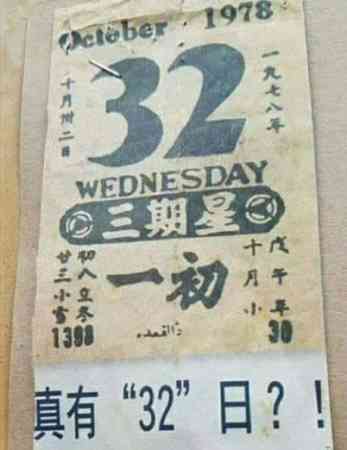 October 1978
一九七八年
十月卅二日
32
WEDNESDAY
星期三
戊午年
十月小
30
初一
初八立冬
廿三小雪
1398
真有“32”日？！